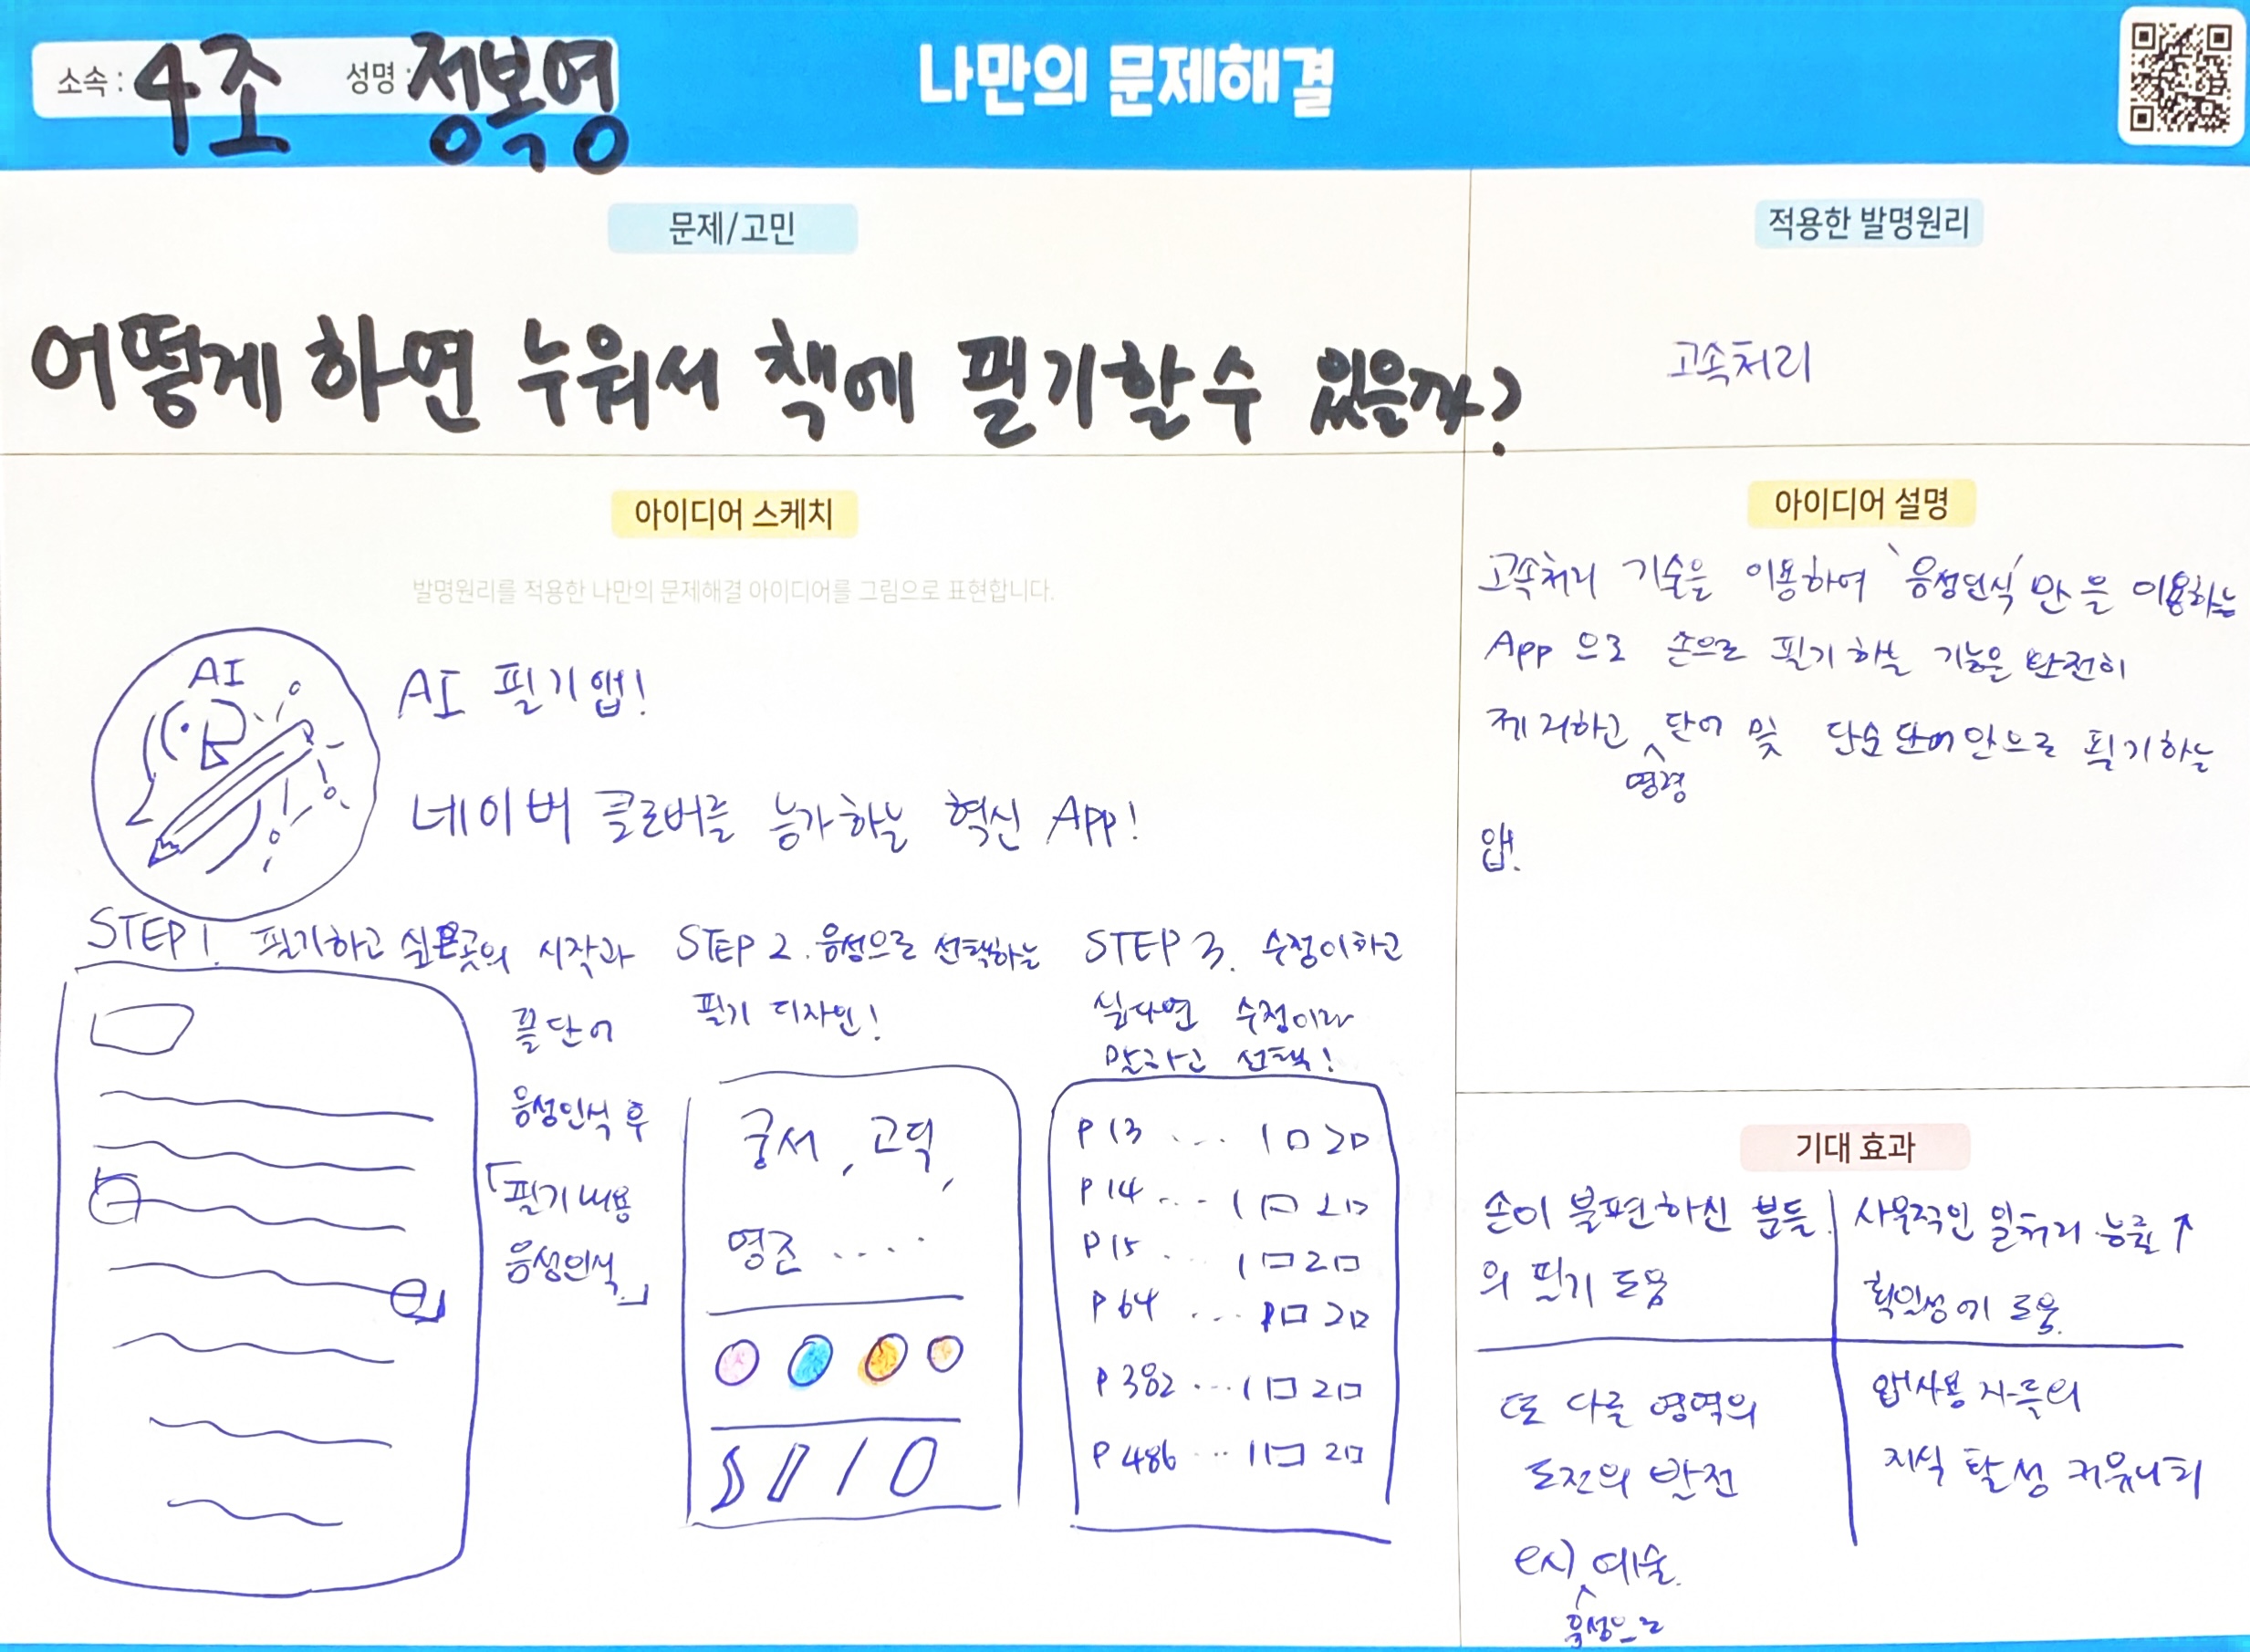 소속 : 4조 성명 : 정복영
나만의 문제해결
문제/고민
어떻게 하면 누워서 책에 필기할 수 있을까?
적용한 발명원리
고속처리
아이디어 스케치
발명원리를 적용한 나만의 문제해결 아이디어를 그림으로 표현합니다.
AI
AI 필기앱!
네이버 클로버를 능가하는 혁신 App!
STEP 1. 필기하고 싶은곳의 시작과
끝단어
음성인식 후
「필기내용
음성인식」
STEP 2. 음성으로 선택하는
필기 디자인!
궁서, 고딕,
명조 ....
STEP 3. 수정이하고
싶다면 수정이라
말하고 선택!
P 13 ... 1□ 2□
P 14 ... 1□ 2□
P 15 . 1□ 2□
P 64 ... 1□ 2□
P 382 ... 1□ 2□
P 486 ... 1□ 2□
아이디어 설명
고속처리 기술을 이용하여 '음성인식'만을 이용하는
App 으로 손으로 필기하는 기능은 완전히
제거하고 명령 단어 및 단순단어만으로 필기하는
앱!
기대 효과
손이 불편하신 분들
의 필기 도움
사무적인 일처리 능률 ↑
확인성에 도움.
또 다른 영역의
도전의 발전
ex) 음성으로 예술.
앱사용자들의
지식 달성 커뮤니티